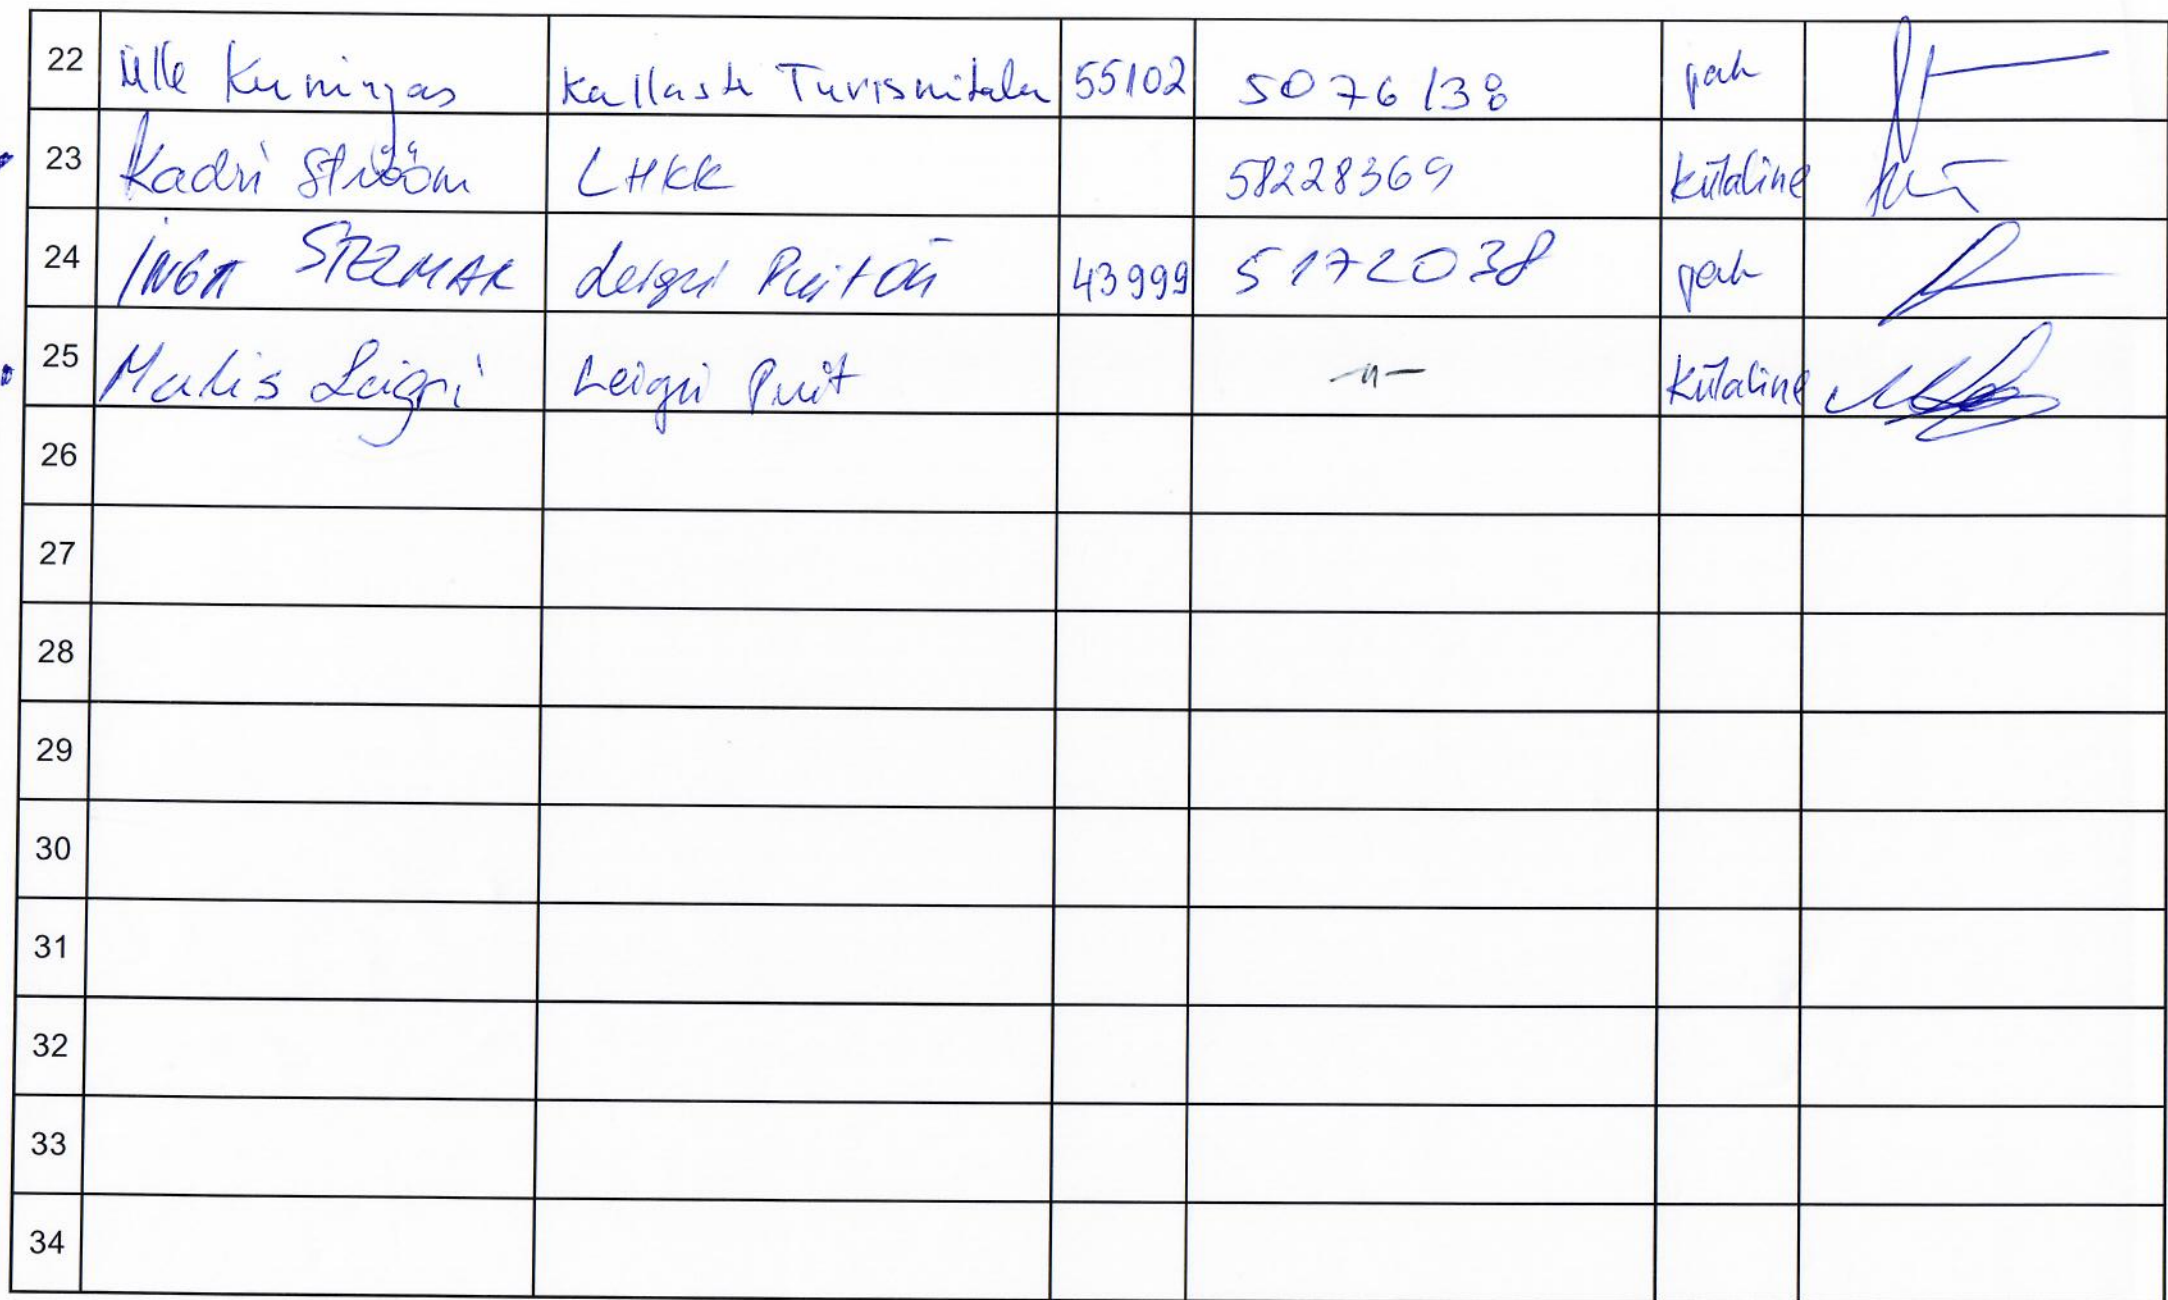 22 Ülle Kuningas Kallaste Turismitalu 55102 5076138 pak
23 Kadri Strööm LHKK 58228369 külaline
24 INGA Leigri Puit OÜ 43999 5172038 pak
25 Malis Leigri Leigri Puit -"- külaline
26
27
28
29
30
31
32
33
34